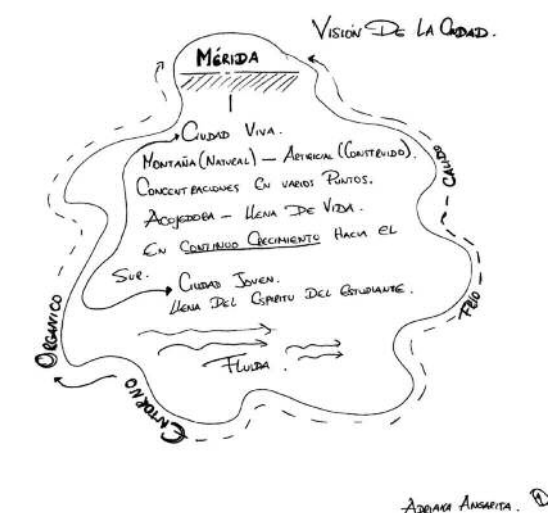 VISIÓN DE LA CIUDAD.
MÉRIDA
CIUDAD VIVA.
MONTAÑA (NATURAL) — ARTIFICIAL (CONSTRUIDO).
CONCENTRACIONES EN VARIOS PUNTOS.
ACOJEDORA — LLENA DE VIDA.
EN CONTINUO CRECIMIENTO HACIA EL
SUR.
CIUDAD JOVEN.
LLENA DEL ESPIRITU DEL ESTUDIANTE.
FLUIDA.
CALIDO
FRIO
ORGANICO
ENTORNO
ADRIANA ANGARITA. 1